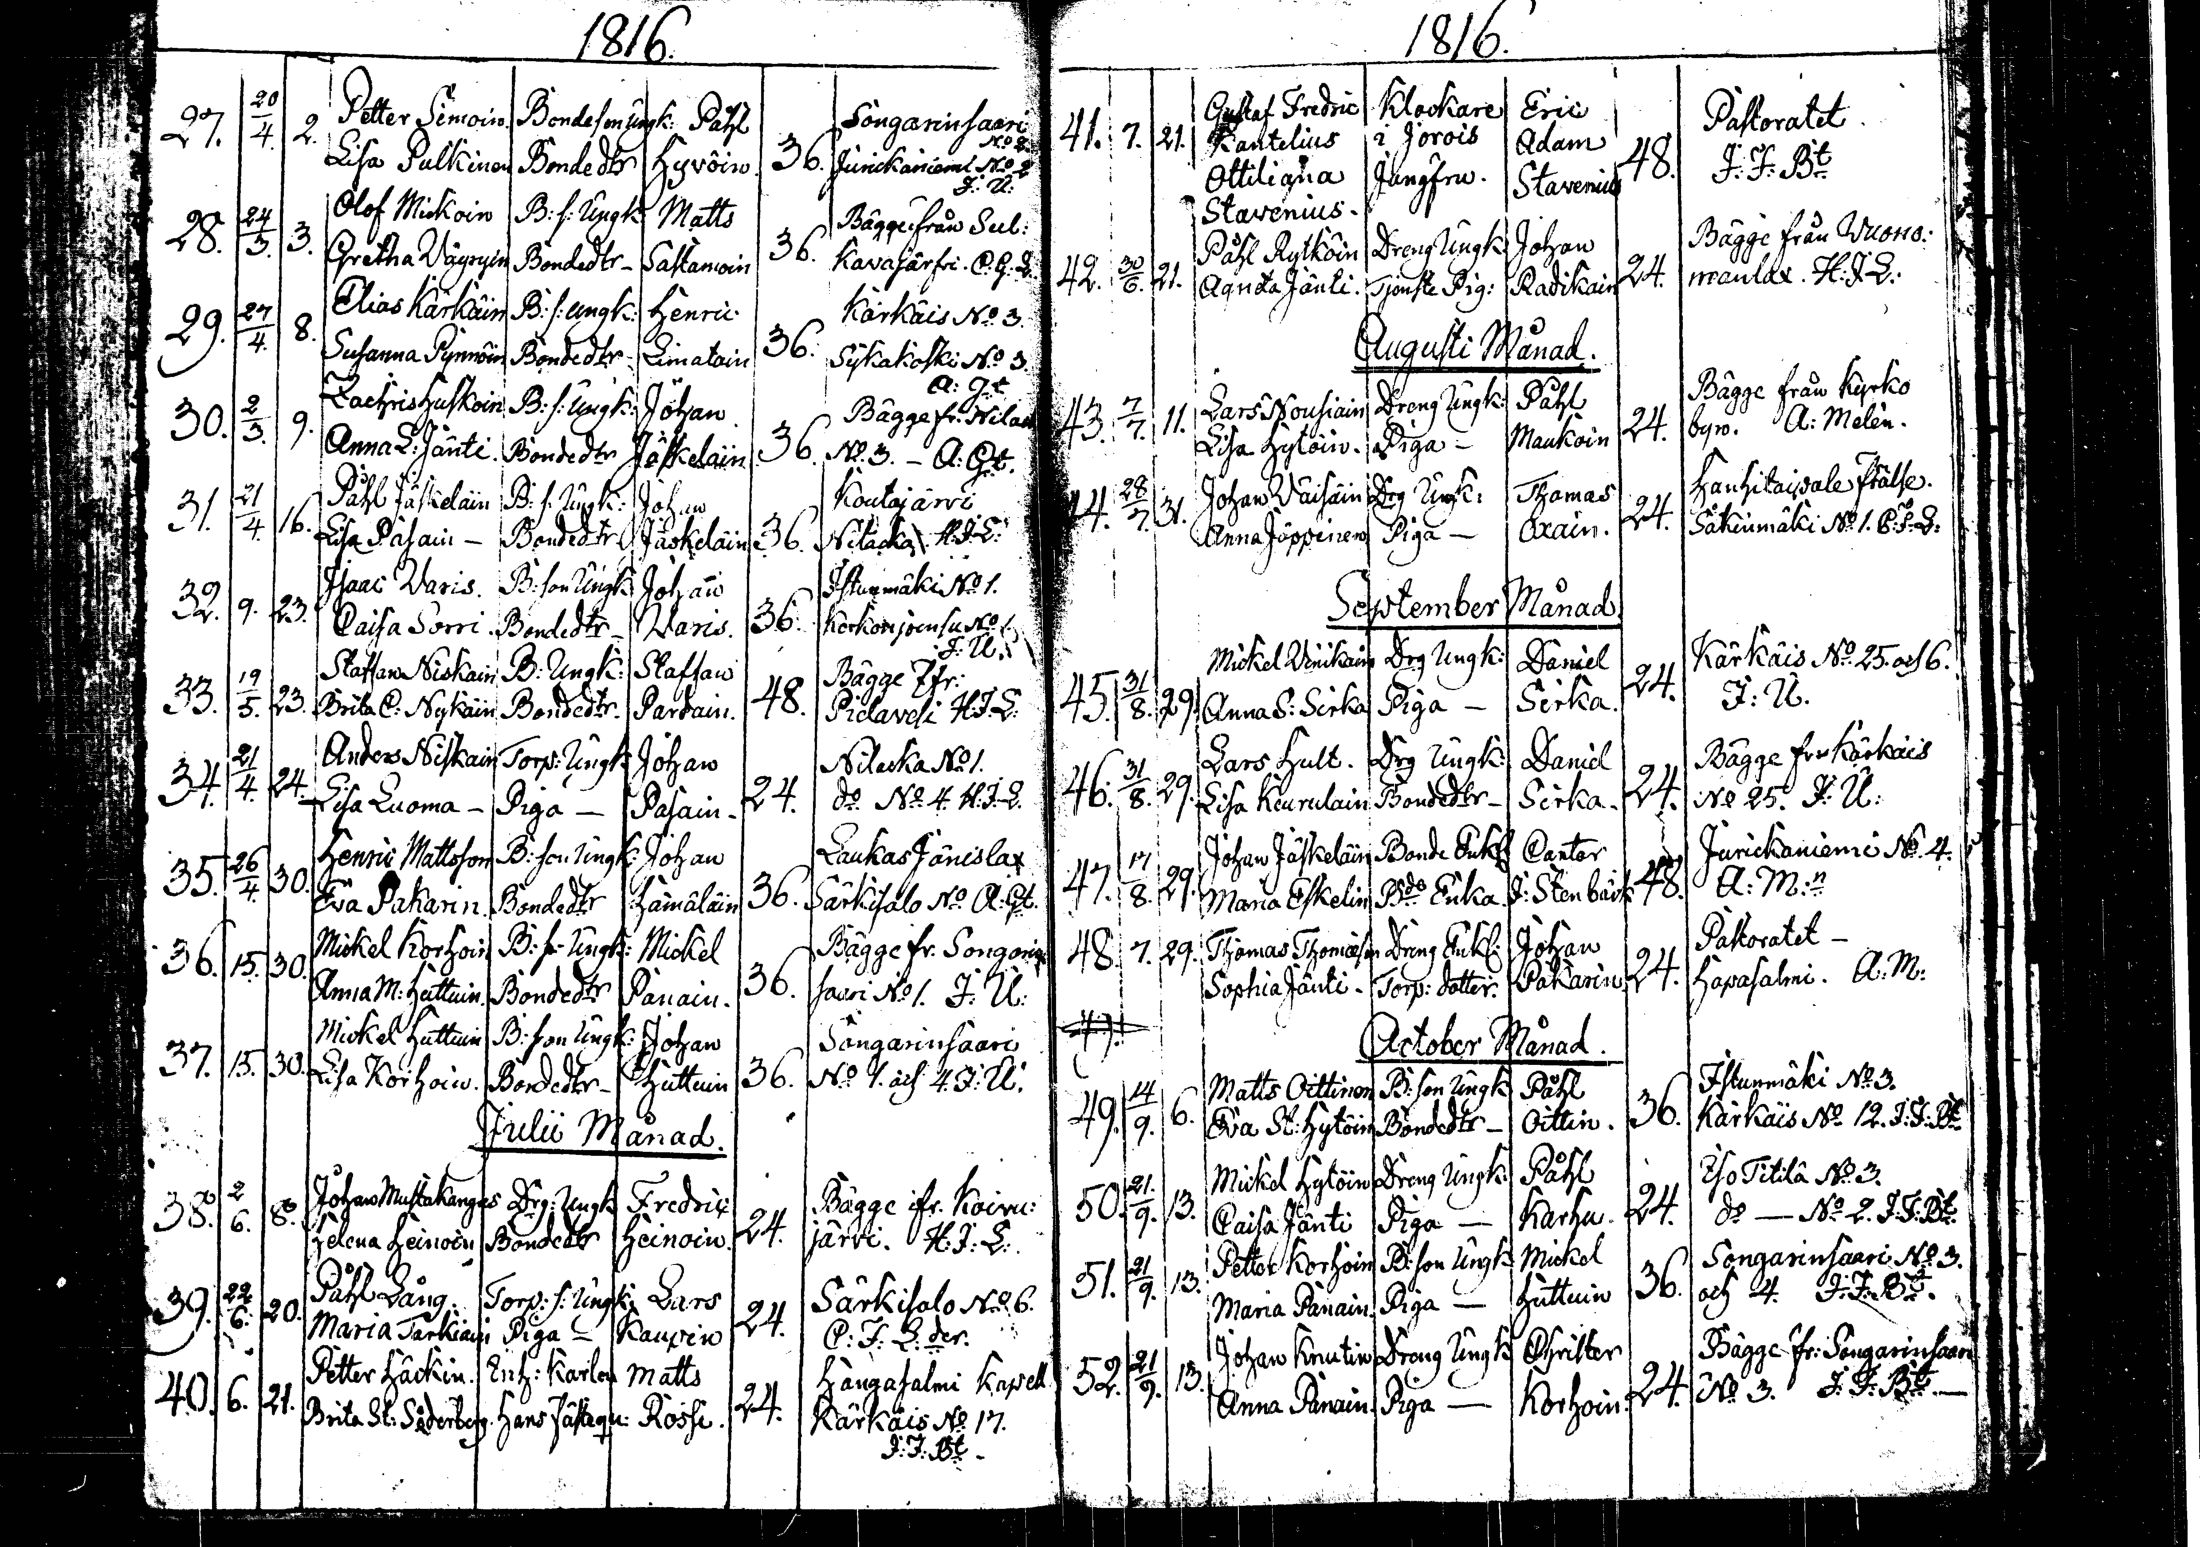 1816.
27. 20/4. 2. Petter Simoin. Bondeson Ungk: Påhl 36. Songarinsaari
No 2.
Lisa Pulkinen Bondedtr Hyvöin. Jurickaniemi No 2
J: U:
28. 24/3. 3. Olof Mickoin B: s: Ungk: Matts 36. Bägge från Sul:
Gretha Väyryin Bondedtr - Sastamoin kavajärfvi. C. G: L.
29. 27/4. 8. Elias Kärkäin B: s: Ungk: Henric 36. Kärkäis No 3.
Susanna Pynnöin Bondedtr - Limatain Sykäkoski No 3
A: Gt
30. 2/3. 9. Zachris Huskoin B: s: Ungk: Johan 36. Bägge fr. Nilack
Anna L: Jänti. Bondedtr Jäskeläin No 3. - A: Gt.
31. 21/4. 16. Påhl Jäskeläin B: s: Ungk: Johan 36. Koutajärvi
Lisa Pasain - Bondedtr Jäskeläin Nilacka H: J: L:
32. 9. 23. Isaac Varis. B: son Ungk: Johan 36. Istunmäki No 1.
Caisa Sorri. Bondedtr - Varis. Kerkonjoensu No 1
J: U.
33. 19/5. 23. Staffan Niskain B: Ungk: Staffan 48. Bägge fr:
Brita C: Nykäin Bondedtr. Pardain. Pielavesi H. J. L:
34. 21/4. 24. Anders Niskain Torp: Ungk Johan 24. Nilacka No 1.
Lisa Luoma - Piga - Pasain - do No 4. H. J. L.
35. 26/4. 30. Henric Mattsson B: son Ungk: Johan 36. Laukas Jänislax
Eva Pakarin. Bondedtr Hämäläin Särkisalo No A: Gt.
36. 15. 30. Mickel Korhoin B: s: Ungk: Mickel 36. Bägge fr. Songarin
Anna M: Huttuin. Bondedtr Panain. saari No 1. J: U:
37. 15. 30. Mickel Huttuin B: son Ungk: Johan 36. Songarinsaari
Lisa Korhoin. Bondedtr - Huttuin No 1. och 4. J: U:
Julii Månad.
38. 2/6. 8. Johan Mustakangas Drg: Ungk Fredric 24. Bägge fr. Koivu:
Helena Heinoin Bondedtr Heinoin. järvi. H: J: L:
39. 22/6. 20. Påhl Lång. Torp: s: Ungk: Lars 24. Särkisalo No 6.
Maria Tarkiain Piga - Kaupin C: J: L: der.
40. 6. 21. Petter Häckin. Enk: Karlen Matts 24. Hangasalmi Kapell
Brita St: Söderberg. Hans Fästeqv: Rossi. Kärkäis No 17.
J: J: Bt -
1816.
41. 7. 21. Gustaf Fredric Klockare Eric 48. Pastoratet.
Kantelius i Jorois Adam J: J: Bt
Ottiliana Jungfru. Stavenius
Stavenius.
42. 30/6. 21. Påhl Rytköin Dreng Ungk: Johan 24. Bägge från Vuono:
Agneta Jänti. Tjenste Pig: Radikain manlax. H: J: L:
Augusti Månad.
43. 7/7. 11. Lars Nousiain Dreng Ungk: Påhl 24. Bägge från Kyrko
Lisa Hytöin. Piga - Maukoin byn. A: Melén.
44. 28/7. 31. Johan Väisäin Drg Ungk: Thomas 24. Hankitaipale frälse.
Anna Jäppinen Piga - Oxain. Säkinmäki No 1. C: J: L:
September Månad
45. 31/8. 29. Mickel Vinikain Drg Ungk: Daniel 24. Kärkäis No 25. och 6.
Anna S: Sirka Piga - Sirka. J: U.
46. 31/8. 29. Lars Hult. Drg Ungk: Daniel 24. Bägge från Kärkäis
Lisa Keurulain Bondedtr - Sirka. No 25. J: U:
47. 17/8. 29. Johan Jäskeläin Bonde Enkl: Cantor 48. Jurickaniemi No. 4.
Maria Eskelin Bde Enka J: Stenbäck A: M:n
48. 7. 29. Thomas Thomasson Dreng Enkl: Johan 24. Pastoratet -
Sophia Jänti - Torp: dotter. Pakarin Hapasalmi. A: M:
49.
October Månad.
49. 14/9. 6. Matts Oittinen B: son Ungk Påhl 36. Istunmäki No 3.
Eva St: Hytöin Bondedtr - Oittin. Kärkäis No 12. J: J: Bt
50. 21/9. 13. Mickel Hytöin Dreng Ungk: Påhl 24. Iso Titilä No 3.
Caisa Jänti Piga - Karhu. do - No 2. J: J: Bt.
51. 21/9. 13. Petter Korhoin B: son Ungk Mickel 36. Songarinsaari No 3.
Maria Panain. Piga - Huttuin och 4. J: J: Bt.
52. 21/9. 13. Johan Knutin Dreng Ungk Christer 24. Bägge fr: Songarinsaari
Anna Panain. Piga - Korhoin. No 3. J: J: Bt. -